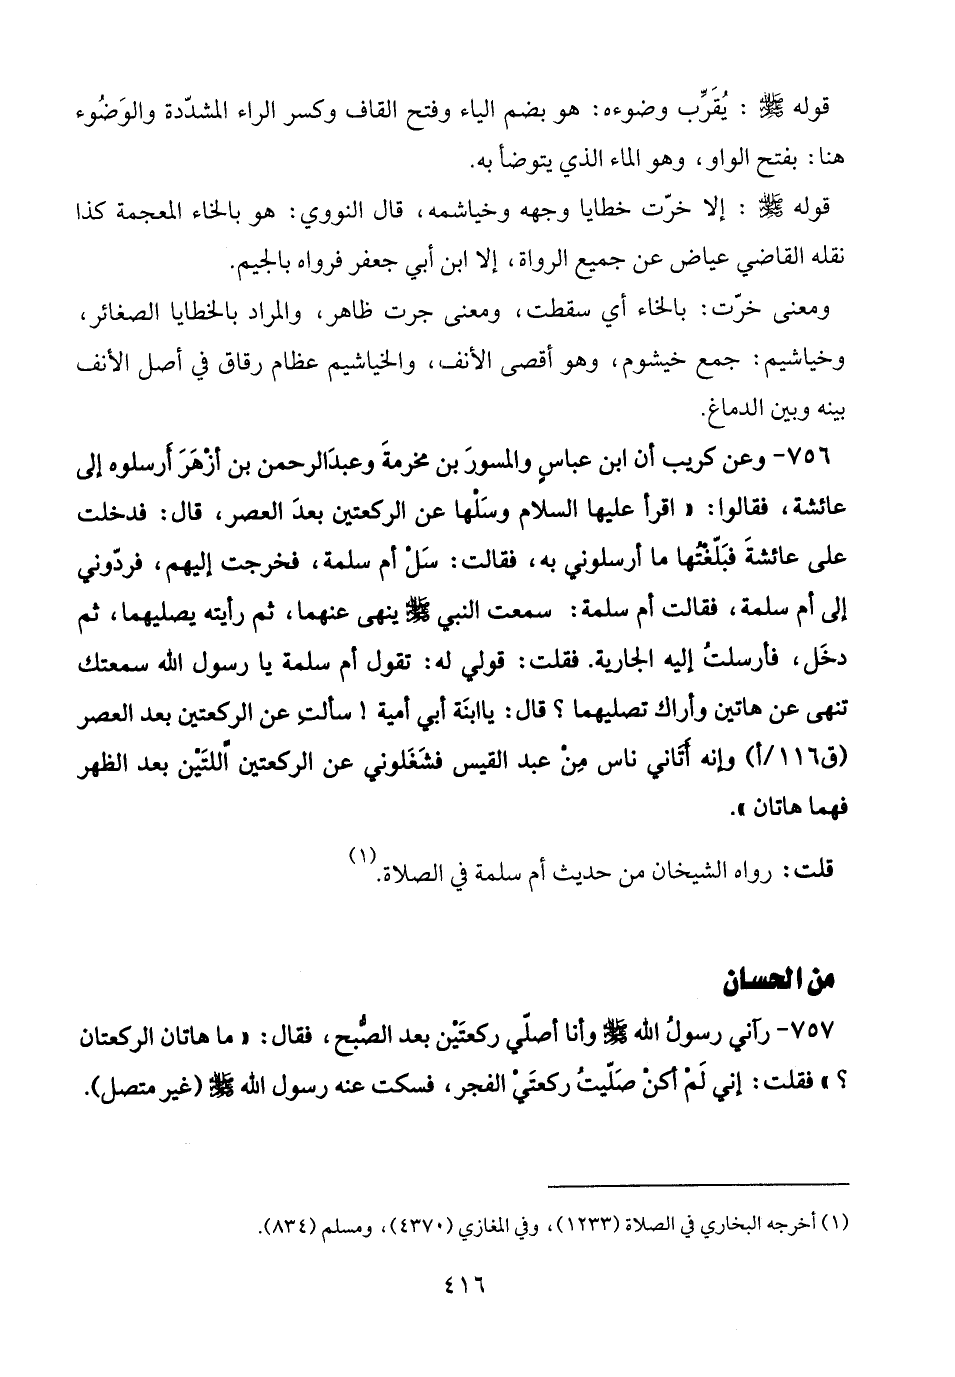 قوله ﷺ : يُقَرِّب وضوءه: هو بضم الياء وفتح القاف وكسر الراء المشدّدة والوَضُوء
هنا: بفتح الواو، وهو الماء الذي يتوضأ به.
قوله ﷺ : إلا خرّت خطايا وجهه وخياشمه، قال النووي: هو بالخاء المعجمة كذا
نقله القاضي عياض عن جميع الرواة، إلا ابن أبي جعفر فرواه بالجيم.
ومعنى خرّت: بالخاء أي سقطت، ومعنى جرت ظاهر، والمراد بالخطايا الصغائر،
وخياشيم: جمع خيشوم، وهو أقصى الأنف، والخياشيم عظام رقاق في أصل الأنف
بينه وبين الدماغ.
٧٥٦- وعن كريب أن ابن عباسٍ والمسورَ بن مخرمةَ وعبدَالرحمن بن أزْهَرَ أرسلوه إلى
عائشة، فقالوا: « اقرأ عليها السلام وسَلْها عن الركعتين بعدَ العصر، قال: فدخلت
على عائشةَ فبَلّغْتُها ما أرسلوني به، فقالت: سَلْ أم سلمة، فخرجت إليهم، فردّوني
إلى أم سلمة، فقالت أم سلمة: سمعت النبي ﷺ ينهى عنهما، ثم رأيته يصليهما، ثم
دخَل، فأرسلتُ إليه الجارية. فقلت: قولي له: تقول أم سلمة يا رسول الله سمعتك
تنهى عن هاتين وأراك تصليهما ؟ قال: ياابنَة أبي أمية ! سألتِ عن الركعتين بعد العصر
(ق١١٦/أ) وإنه أَتَاني ناس مِنْ عبد القيس فشَغَلوني عن الركعتين اّللتَيْن بعد الظهر
فهما هاتان ».
قلت: رواه الشيخان من حديث أم سلمة في الصلاة.(١)
من الحسان
٧٥٧- رآني رسولُ الله ﷺ وأنا أصلّي ركعتَيْن بعد الصُّبح، فقال: « ما هاتان الركعتان
؟ » فقلت: إني لَمْ أكنْ صَلّيتُ ركعتَيْ الفجر، فسكت عنه رسول الله ﷺ (غير متصل).
(١) أخرجه البخاري في الصلاة (١٢٣٣)، وفي المغازي (٤٣٧٠)، ومسلم (٨٣٤).
٤١٦